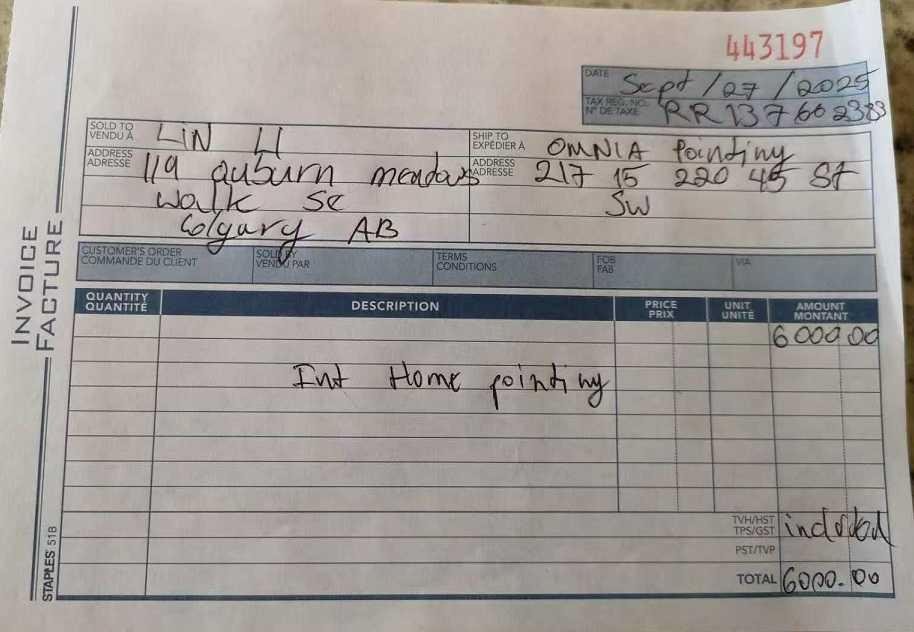 443197
DATE Sept/27/2025
TAX REG. NO. N° DE TAXE RR 137602383
SOLD TO VENDU À LiN LI
ADDRESS ADRESSE 119 auburn meadows
walk SE
Calgary AB
SHIP TO EXPÉDIER À OMNIA Painting
ADDRESS ADRESSE 217 15 220 45 St
SW
INVOICE
FACTURE
CUSTOMER'S ORDER COMMANDE DU CLIENT SOLD BY VENDU PAR TERMS CONDITIONS FOB FAB VIA
QUANTITY QUANTITÉ DESCRIPTION PRICE PRIX UNIT UNITÉ AMOUNT MONTANT
6000.00
Int Home painting
TVH/HST TPS/GST included
PST/TVP
TOTAL 6000.00
STAPLES 51B